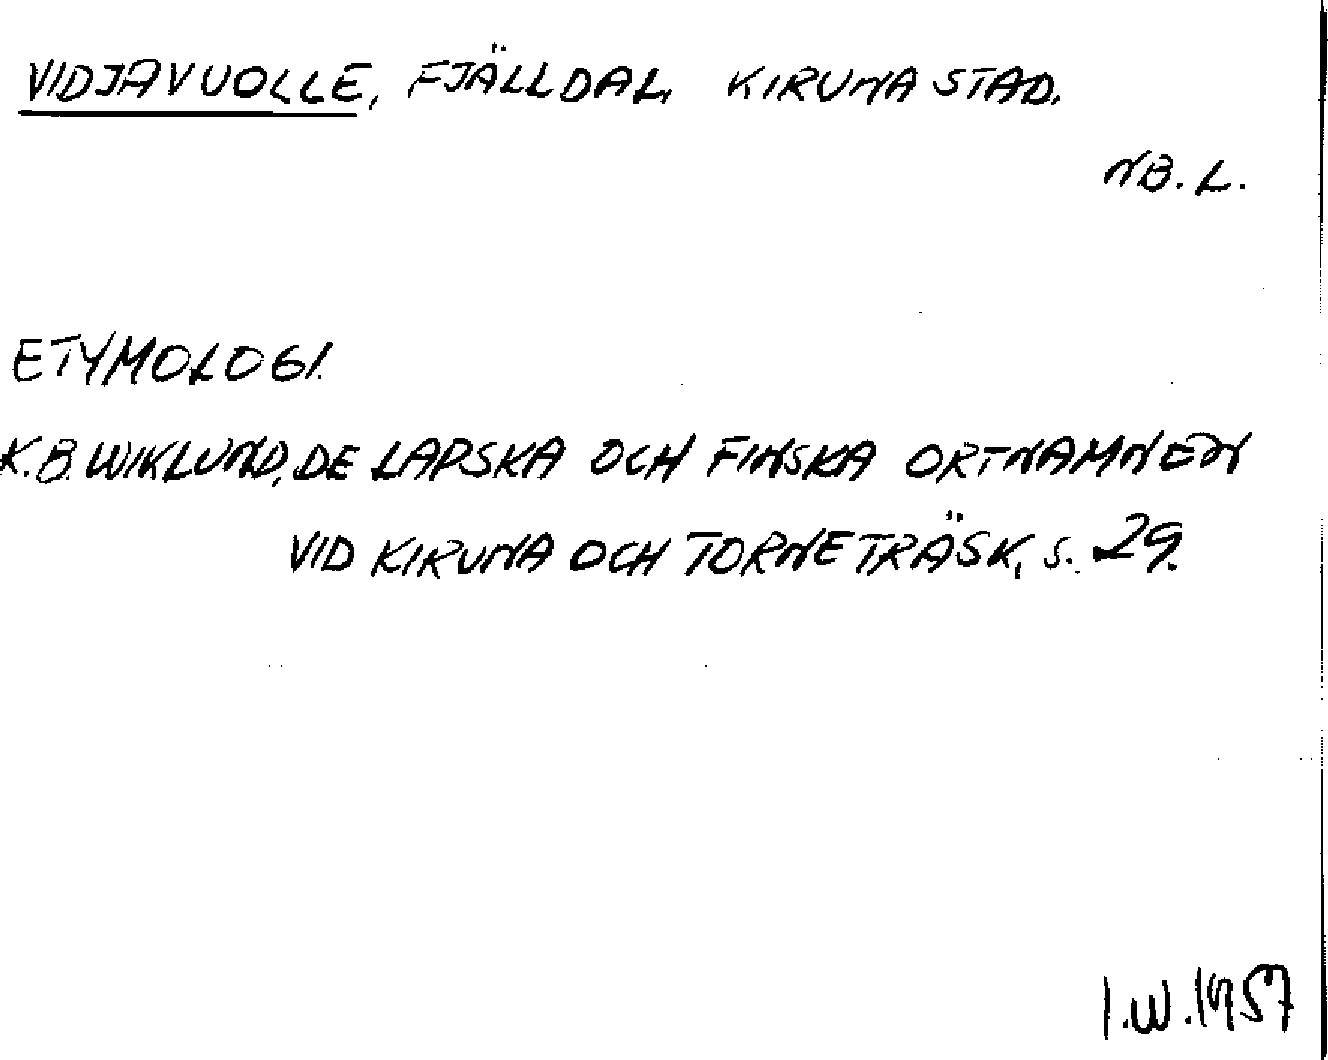 VIDJAVUOLLE, FJÄLLDAL, KIRUNA STAD.
NB. L.
ETYMOLOGI.
K.B. WIKLUND, DE LAPSKA OCH FINSKA ORTNAMNEN
VID KIRUNA OCH TORNETRÄSK, S. 29.
I.W. 1957